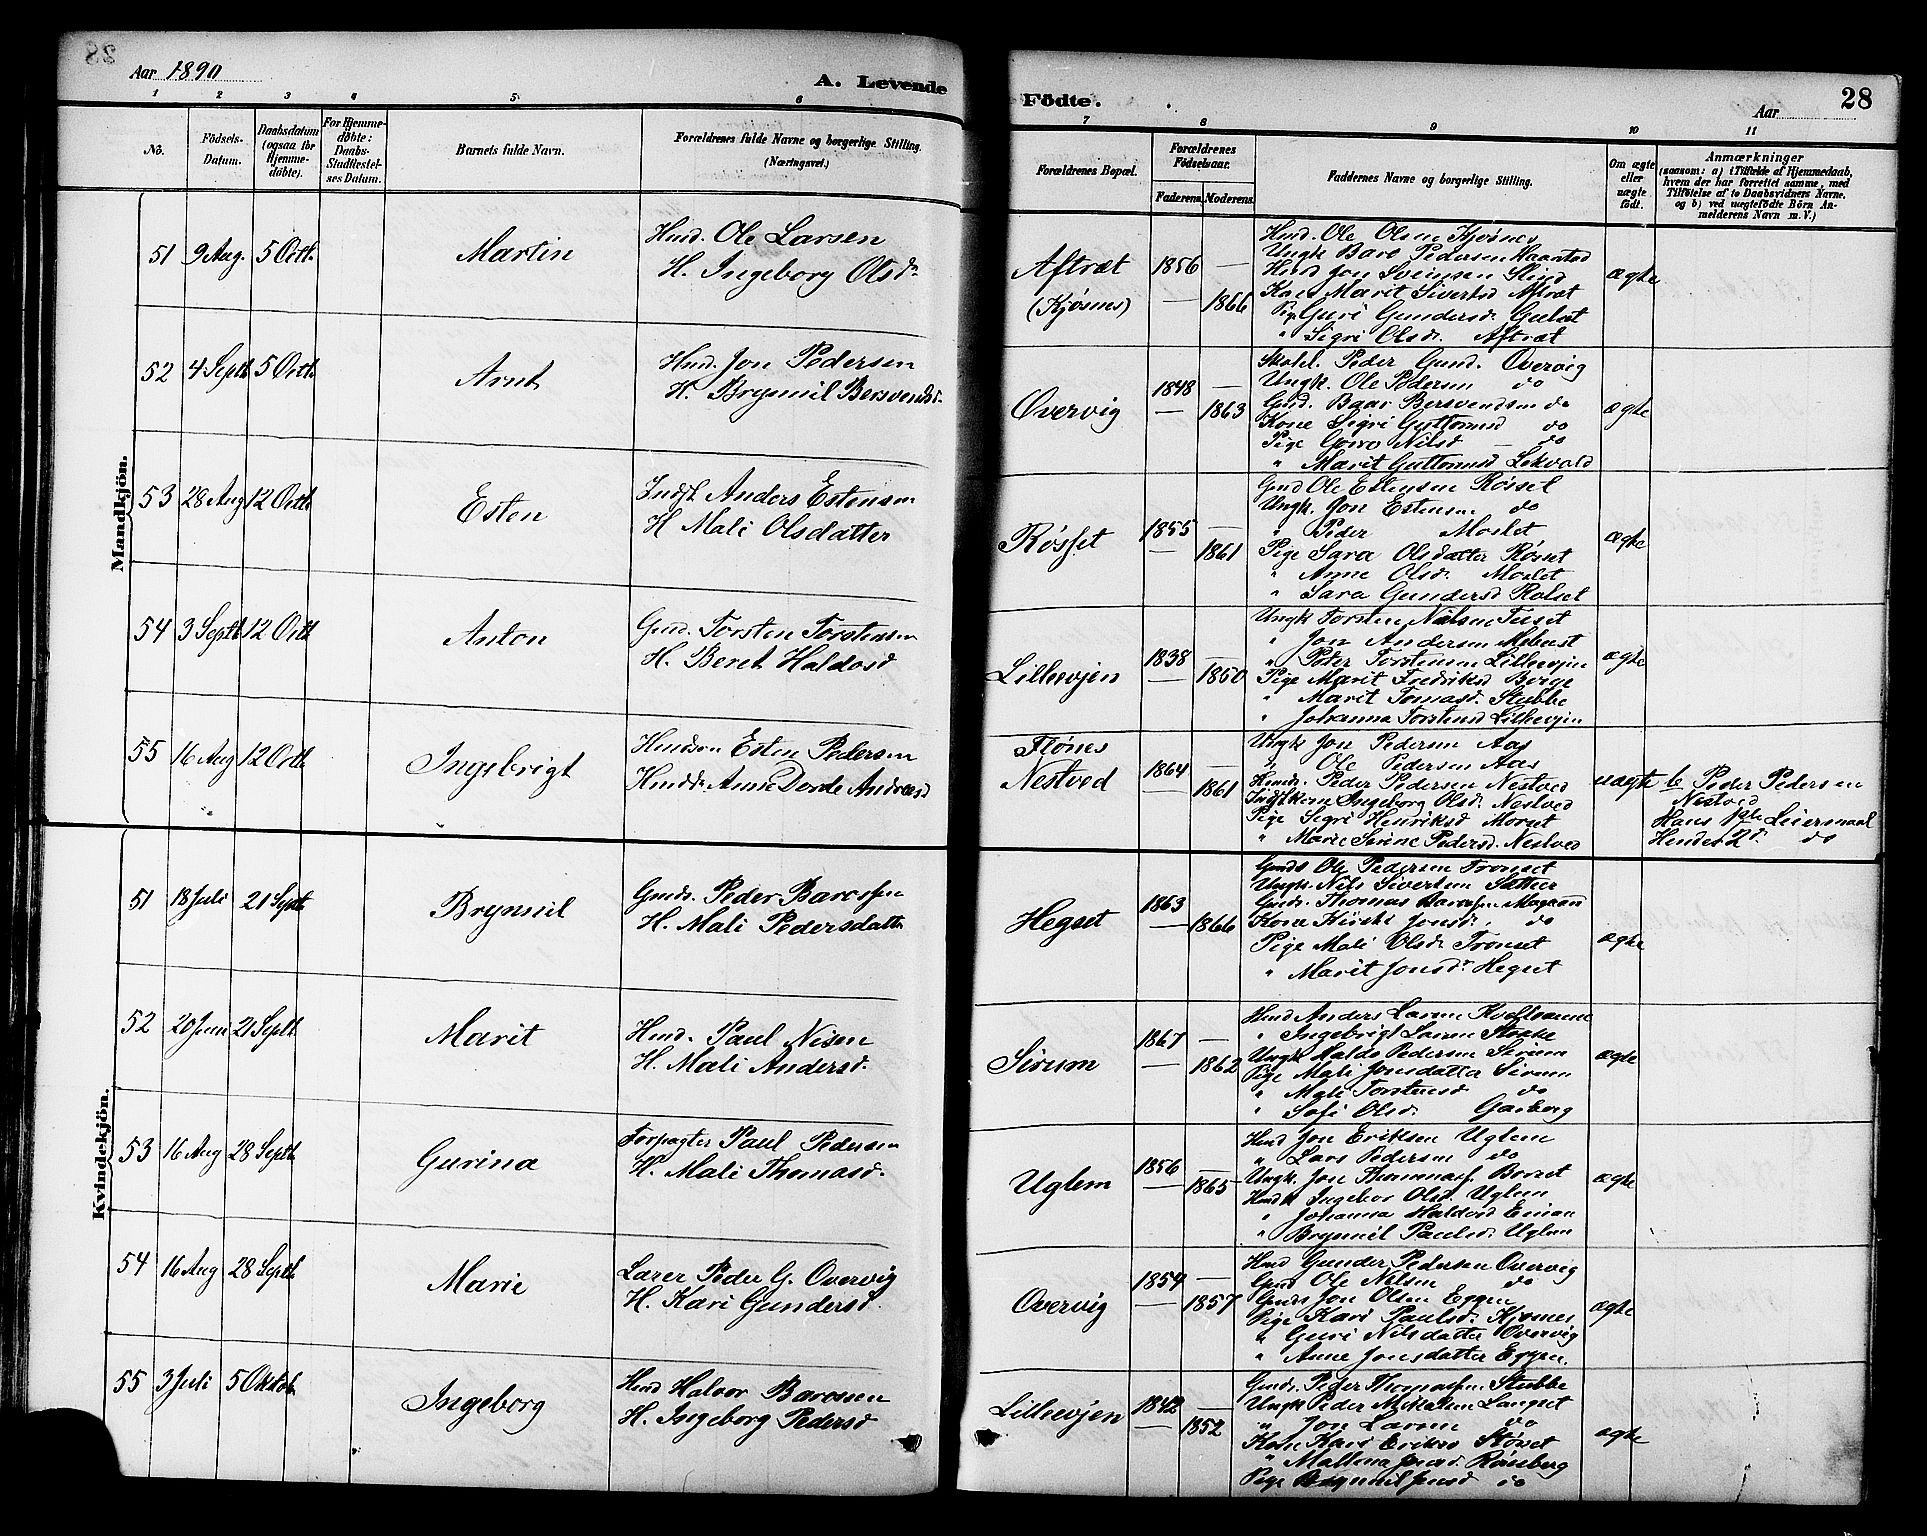 Aar 1890
A. Levende
Födte.
Aar
28
1 2 3 4 5 6 7 8 9 10 11
No.
Födsels-Datum.
Daabsdatum (ogsaa for Hjemme-döbte).
For Hjemme-döbte: Daabs-Stadfæstel-ses Datum.
Barnets fulde Navn.
Forældrenes fulde Navne og borgerlige Stilling. (Næringsvei.)
Forældrenes Bopæl.
Forældrenes Födselsaar.
Faderens. Moderens.
Faddernes Navne og borgerlige Stilling.
Om ægte eller uægte födt.
Anmærkninger
(saasom: a) i Tilfælde af Hjemmedaab,
hvem der har forrettet samme, med
Tilföielse af to Daabsvidners Navne,
og b) ved uægtefödte Börn An-
melderens Navn m. V.)
Mandkjön.
51 9 Aug. 5 Octb. Martin
Hmd. Ole Larsen
H. Ingeborg Olsdr
Aftræt
(Kjøsnes)
1856 —
— 1866
Hmd. Ole Olsen Kjøsnes
Ungk. Baro Pedersen
Hmd Jon Svensen Slind
Kone Marit Sivertsd Aftræt
Pige Guri Gundersd.
" Sigri Olsd. Aftræt
ægte
52 4 Septb 5 Octb Arnt
Hmd. Jon Pedersen
H. Brynnil Bersvendsd.
Overvig
1848 —
— 1863
Peder Gund. Overvig
Ungk. Ole Pedersen do
Gmd. Baar Bersvendsen do
Kone Sigri Guttormsd do
Pige Goro Nilsd — do
" Marit Guttormsd Lekvold
ægte
53 28 Aug 12 Octb Esten
Indst. Anders Estensen
H Mali Olsdatter
Røsset
1855 —
— 1861
Gmd Ole Estensen Røsset
Ungk. Jon Estensen do
" Peder Moslet
Pige Sara Olsdatter Røsset
" Anne Olsd. Moslet
" Sara Gundersd Rolset
ægte
54 3 Septb 12 Octb Anton
Gmd. Torsten Torstensen
H. Beret Haldosd
Lillevjen
1838 —
— 1850
Ungk Torsten Nilsen Tuset
" Jon Andersen
" Peter Torstensen Lillevjen
Pige Marit Fredriksd Berge
" Marit Tomasd. Stubbe
" Johanna Torstensd Lillevjen
ægte
55 16 Aug 12 Octb Ingebrigt
Hmdsøn Esten Pedersen
Hmdd. Anne Dorde Andreasd
Flønes
Nestved
1864 —
— 1861
Ungk Jon Pedersen Aas
" Ole Pedersen Aas
Hmds. Peder Pedersen Nestved
Ingeborg Olsd. Nestved
Pige Sigri Henriksd Morset
" Marie Serine Pedersd. Nestved
uægte
b Peder Pedersen
Nestved
Hans 1ste Leiermaal
Hendes 2d. do
Kvindekjön.
51 18 Juli 21 Septb Brynnil
Gmds. Peder Barossen
H. Mali Pedersdatter
Hegset
1863
— 1866
Gmds Ole Pedersen Tronset
Ungk. Nils Sivertsen Sætter
Gmds. Thomas Barossen
Kone Jonsd. do
Pige Mali Olsdr Tronset
" Marit Jonsdr Hegset
ægte
52 20 Juni 21 Septb Marit
Hmd. Paul Nisen
H. Mali Andersd.
Sirum
1867 —
— 1862
Hmd Anders Larsen
" Ingebrigt Larsen Stokke
Ungk Haldo Pedersen Sirum
Pige Mali Jonsdatter Sirum
" Mali Torstensd do
" Sofi Olsd. Garberg
ægte
53 16 Aug 28 Septb Gurina
Forpagter Paul Pedersen
H. Mali Thomasd.
Uglem
1856 —
— 1865
Hmd Jon Eriksen Uglem
" Lars Pedersen do
Ungk. Jon Thommass. Borset
Ingebor Olsd. Uglem
" Johanna Haldosd
" Brynnil Paulsd. Uglem
ægte
54 16 Aug 28 Septb Marie
Lærer Peder G. Overvig
H. Kari Gundersd.
Overvig
1854 —
— 1857
Hmd Gunder Pedersen Overvig
Gmd Ole Nilsen do
Gmds Jon Olsen Eggen
Pige Kari Paulsd. Kjøsnes
" Guri Nilsdatter Overvig
" Anne Jonsdatter Eggen.
ægte
55 3 Juli 5 Oktob Ingeborg
Hmd Halvor Barossen
H. Ingeborg Pedersd
Lillevjen
1842 —
— 1852
Gmds. Peder Thomassen Stubbe
Ungk Peder Mikkelsen Langset
" Jon Larsen do
Kone Kari Eriksd Støvset
" Mallena Jonsd. Rønsberg
Pige Brynnil Jonsd do
ægte